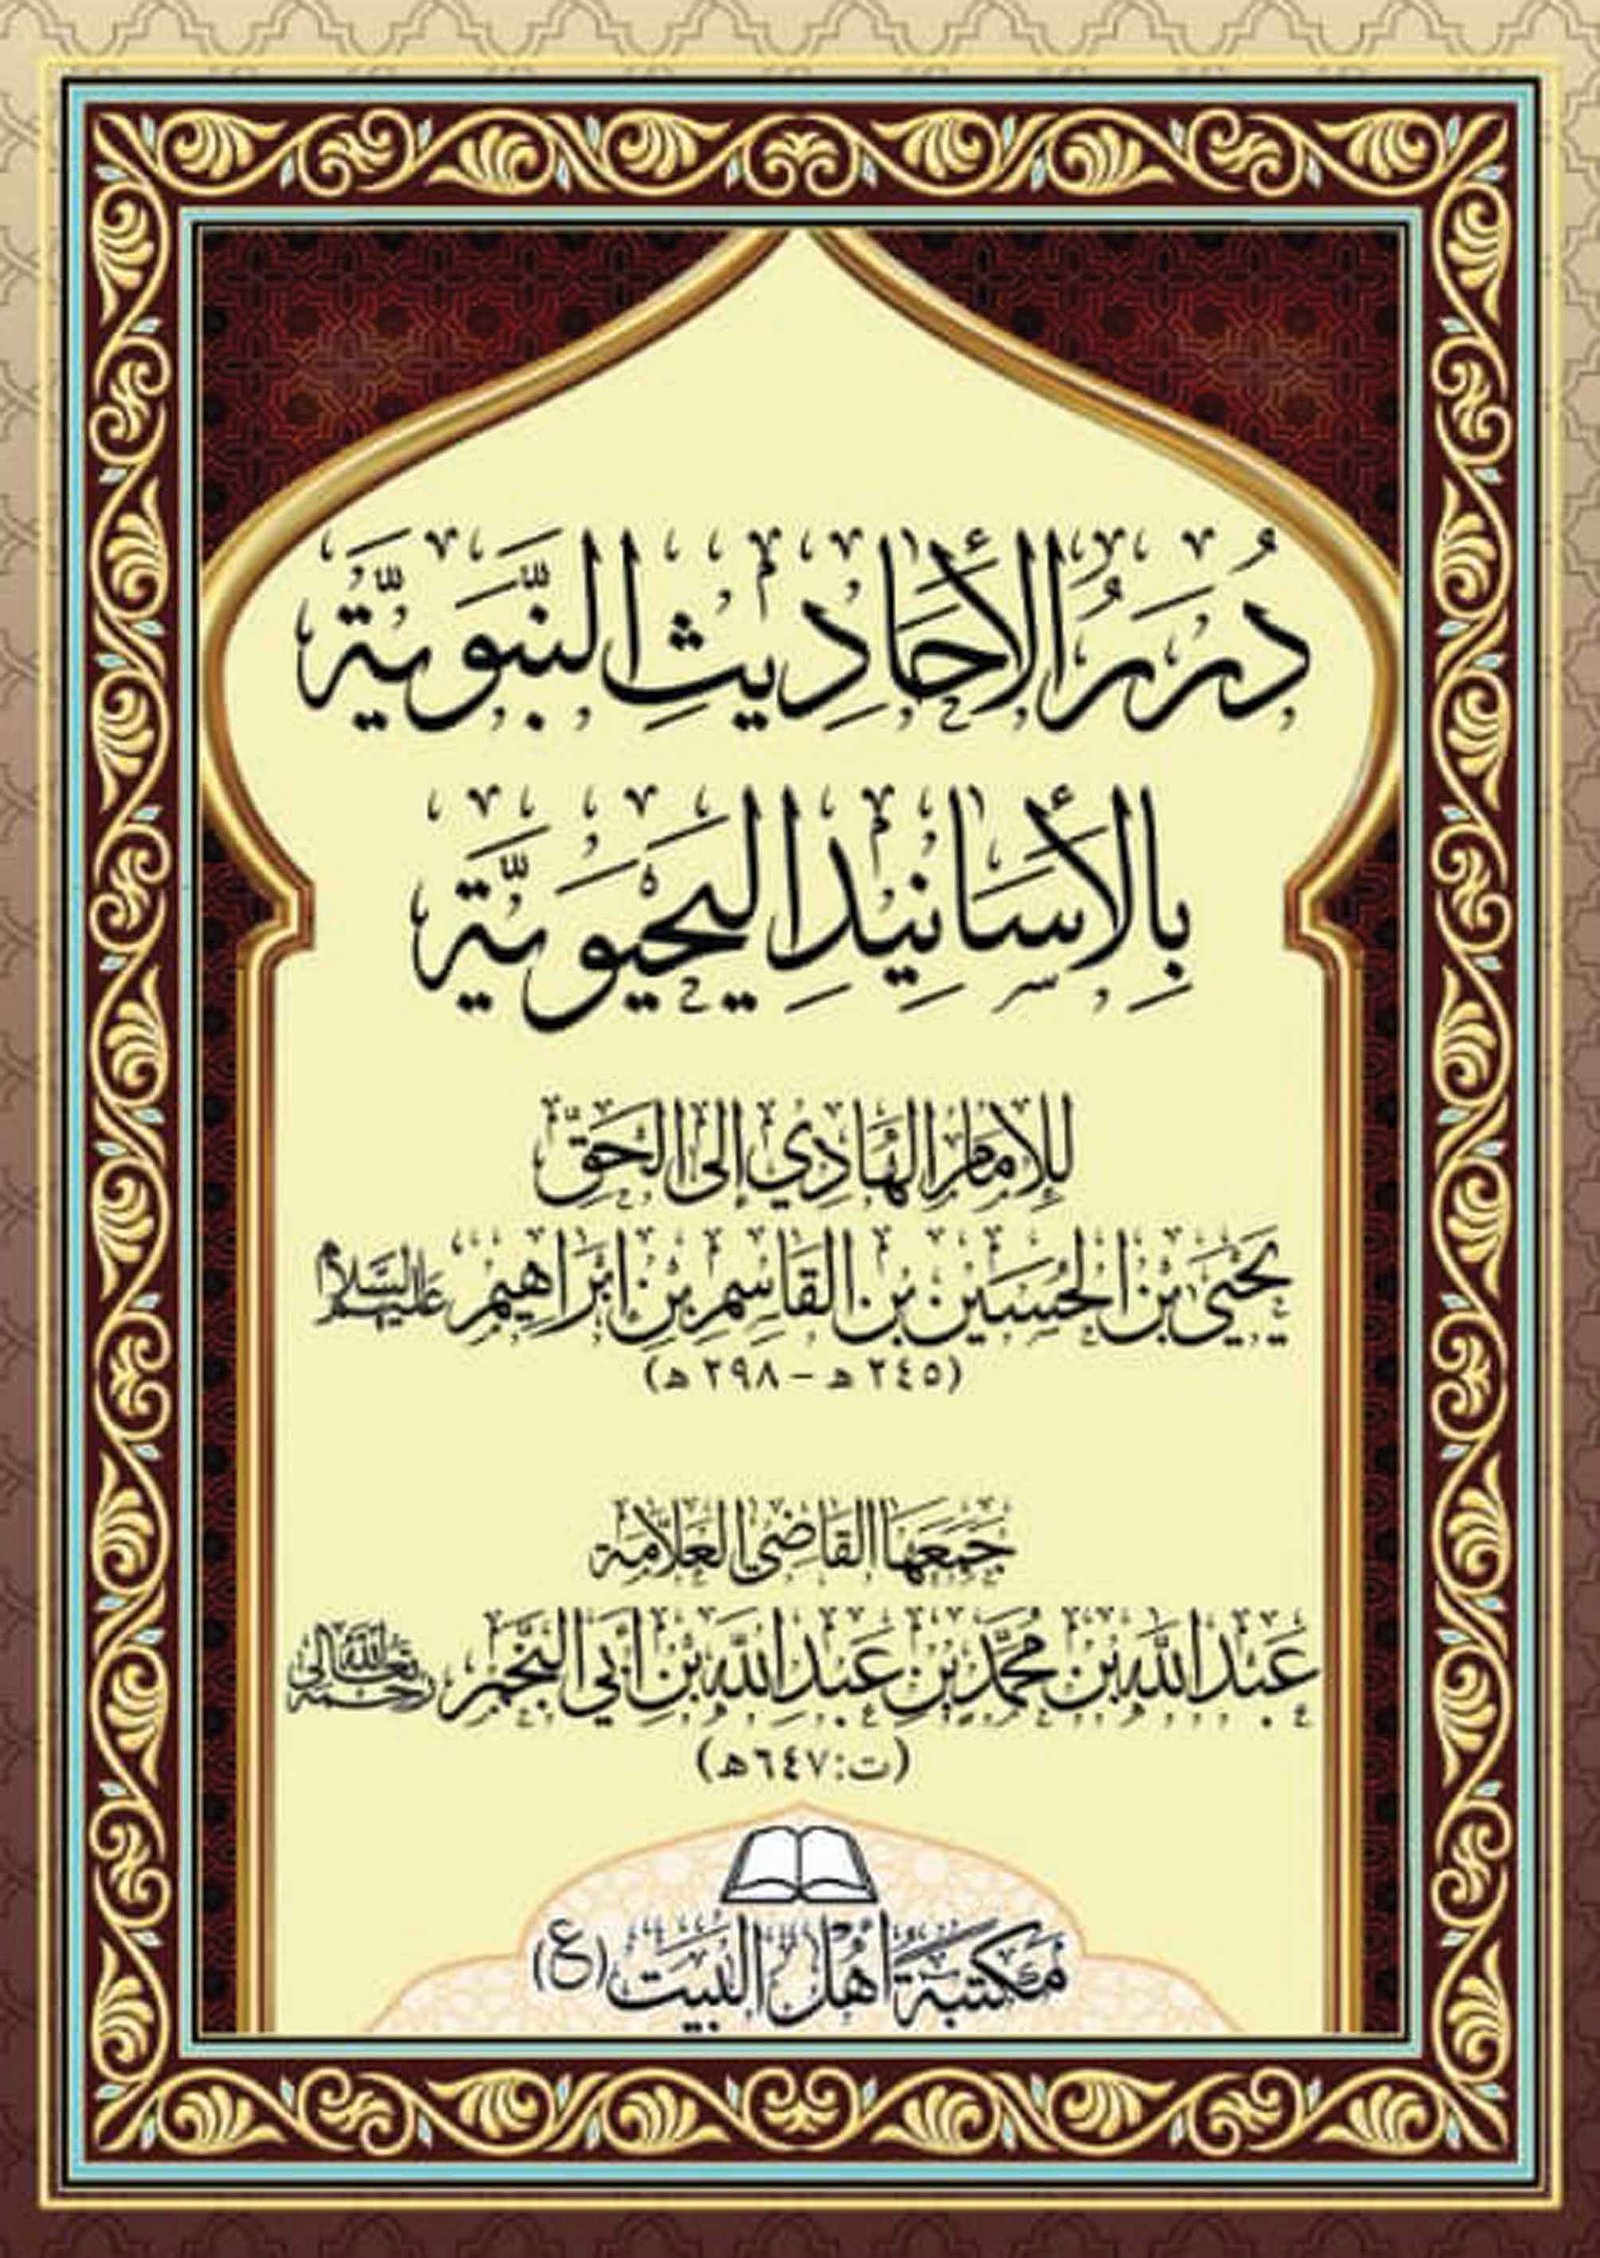 دُرَرُ الأَحَادِيثِ النَّبَوِيَّة
بِالأَسَانِيدِ اليَحْيَوِيَّة
لِلإِمَامِ الهَادِي إِلَى الحَقِّ
يَحْيَى بن الحُسَيْن بن القَاسِم بن إبْرَاهِيم عَلَيْهِم السَّلَام
(٢٤٥ هـ – ٢٩٨ هـ)
جَمَعَهَا القَاضِي العَلَّامَة
عَبْد اللَّه بْن مُحَمَّد بْن عَبْد اللَّه بْن أَبِي النَّجْم رحمه الله تعالى
(ت:٦٤٧هـ)
مَكتَبَة أهل البَيت (ع)